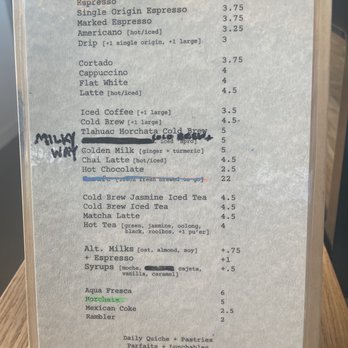 Espresso
Single Origin Espresso 3.75
Marked Espresso 3.75
Americano [hot/iced] 4
Drip [+1 single origin, +1 large] 3
Cortado 3.75
Cappuccino 4
Flat White 4
Latte [hot/iced] 4.5
Iced Coffee [+1 large] 3.5
Cold Brew [+1 large] 4.5
Tlahuac Horchata Cold Brew 5
MILKY WAY COLD BREW 5
Golden Milk [ginger + turmeric] 5
Chai Latte [hot/iced] 4.5
Hot Chocolate 2.5
22
Cold Brew Jasmine Iced Tea 4.5
Cold Brew Iced Tea 4.5
Matcha Latte 4.5
Hot Tea [green, jasmine, oolong, 4.5
black, rooibos, +1 pu'er]
Alt. Milks [oat, almond, soy] +.75
+ Espresso +1
Syrups [mocha, cajeta, +.5
vanilla, caramel]
Aqua Fresca 6
Horchata 5
Mexican Coke 2.5
Rambler 2
Daily Quiche + Pastries
Parfaits + Lunchables